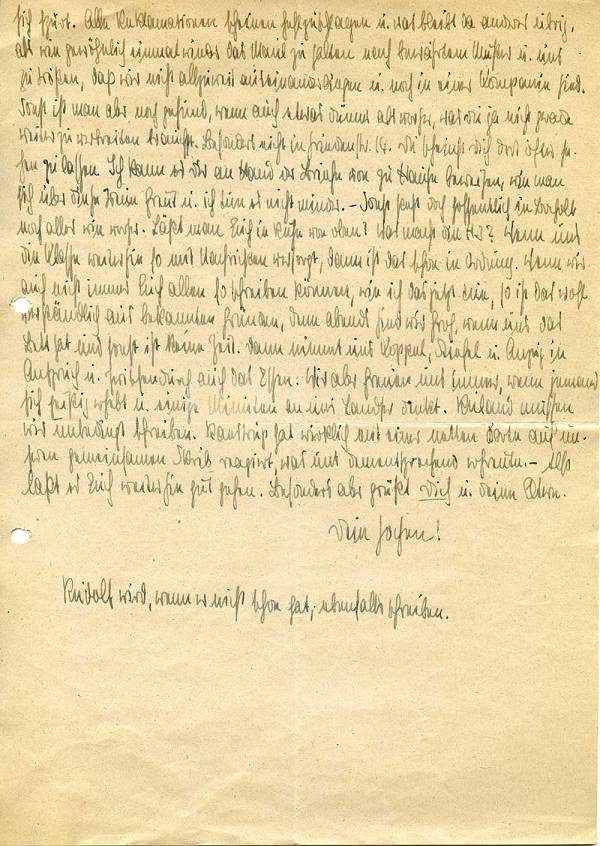 sich spürt. Alle Reklamationen scheinen fehlzuschlagen u. was bleibt da anderes übrig,
als wie gewöhnlich einmal wieder das Maul zu halten nach bewährtem Muster u. uns
zu trösten, daß wir nicht allzuweit auseinanderliegen u. noch in einer Kompanie sind.
Sonst ist man aber noch gesund, wenn auch etwas dünner als vorher, was Du ja nicht gerade
weiter zu verbreiten brauchst. Besonders nicht in Friedenstr. 14. Du scheinst Dich dort öfter se-
hen zu lassen. Ich kann es Dir an Hand der Briefe von zu Hause beweisen, wie man
sich über diese freut u. ich tue es nicht minder. – Sonst ist doch hoffentlich in
noch alles wie vorher. Läßt man Euch in Ruhe von oben? Was macht die HJ? Wenn uns
die Klasse weiterhin so mit Nachrichten versorgt, dann ist das schon in Ordnung. Wenn wir
auch nicht immer Euch allen so schreiben können, wie ich das jetzt tue, so ist das wohl
verständlich aus bekannten Gründen, denn abends sind wir froh, wenn uns das
Bett hat und sonst ist keine Zeit. Dann nimmt uns Koppel, Stiefel u. Anzug in
Anspruch u. zwischendurch auch das Essen. Wir aber freuen uns immer, wenn jemand
sich u. einige Minuten an uns Landser denkt. Ruland müssen
wir unbedingt schreiben. hat wirklich mit einer netten Karte auf un-
sern gemeinsamen Schrieb reagiert, was uns dementsprechend erfreute. – Also
laßt es Euch weiterhin gut gehen. Besonders aber grüßt Dich u. Deine Eltern
Dein Jochen!
Rudolf wird, wenn er nicht schon hat, ebenfalls schreiben.